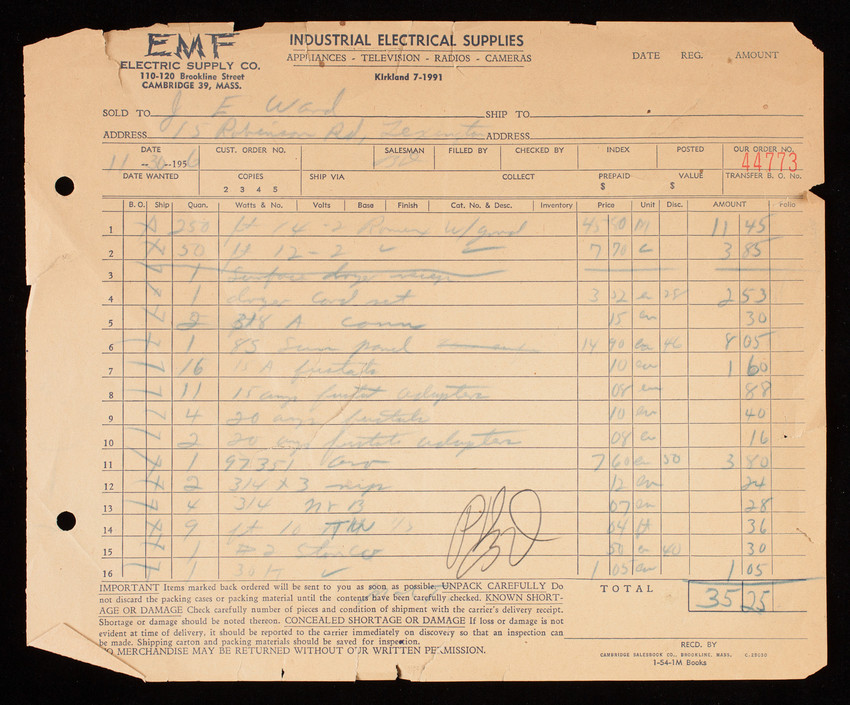 EMF
ELECTRIC SUPPLY CO.
110-120 Brookline Street
CAMBRIDGE 39, MASS.
INDUSTRIAL ELECTRICAL SUPPLIES
APPLIANCES - TELEVISION - RADIOS - CAMERAS
Kirkland 7-1991
DATE REG. AMOUNT
SOLD TO J E Ward SHIP TO
ADDRESS 15 Robinson Rd, ADDRESS
DATE CUST. ORDER NO. SALESMAN FILLED BY CHECKED BY INDEX POSTED OUR ORDER NO.
11 -- 30 --1956 44773
DATE WANTED COPIES SHIP VIA COLLECT PREPAID VALUE TRANSFER B. O. No.
2 3 4 5 $ $
B. O. Ship Quan. Watts & No. Volts Base Finish Cat. No. & Desc. Inventory Price Unit Disc. AMOUNT Folio
1 X 250 ft 14-2 Romex W/ground 45 80 M 11 45
2 X 50 ft 12-2 7 70 C 3 85
3 1 Surface dryer recep
4 1 dryer Cord set 3 52 ea 28 2 53
5 2 3/8 A conn 15 ea 30
6 1 85 panel 14 90 ea 46 8 05
7 16 15 A fustats 10 ea 1 60
8 11 15 amp fustat adapters 08 ea 88
9 4 20 amp fustats 10 ea 40
10 2 20 amp fustats adapters 08 ea 16
11 1 97351 7 60 ea 50 3 80
12 2 314 X 3 12 ea 24
13 4 314 07 ea 28
14 9 ft 10 TW 04 ft 36
15 1 50 ea 40 30
16 1 30 1 05 ea 1 05
IMPORTANT Items marked back ordered will be sent to you as soon as possible. UNPACK CAREFULLY Do
not discard the packing cases or packing material until the contents have been carefully checked. KNOWN SHORT-
AGE OR DAMAGE Check carefully number of pieces and condition of shipment with the carrier's delivery receipt.
Shortage or damage should be noted thereon. CONCEALED SHORTAGE OR DAMAGE If loss or damage is not
evident at time of delivery, it should be reported to the carrier immediately on discovery so that an inspection can
be made. Shipping carton and packing materials should be saved for inspection.
NO MERCHANDISE MAY BE RETURNED WITHOUT OUR WRITTEN PERMISSION.
TOTAL 35 25
RECD. BY
CAMBRIDGE SALESBOOK CO., BROOKLINE, MASS. C-25050
1-54-1M Books